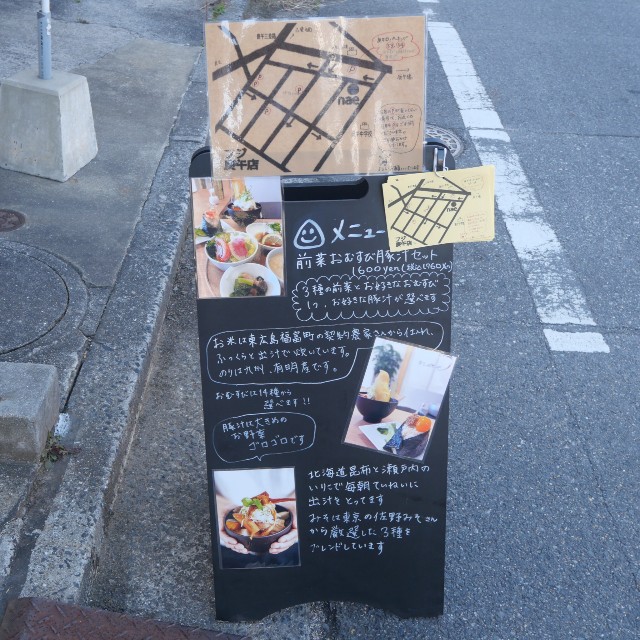 nae
nae
メニュー
前菜おむすび豚汁セット
1600yen(税込1760yen)
3種の前菜とお好きなおむすび
1つ、お好きな豚汁が選べます
お米は東広島福富町の契約農家さんから仕入れ、
ふっくらと出汁で炊いています。
のりは九州、有明産です。
おむすびは14種から
選べます!!
豚汁は大きめの
お野菜
ゴロゴロです
北海道昆布と瀬戸内の
いりこで毎朝ていねいに
出汁をとってます
みそは東京の佐野みそさん
から厳選した3種を
ブレンドしています